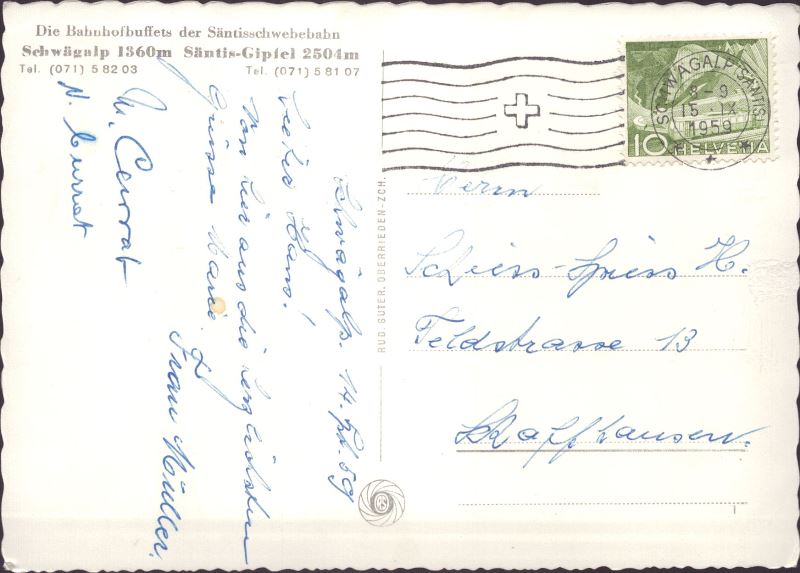 Die Bahnhofbuffets der Säntisschwebebahn
Schwägalp 1360m Säntis-Gipfel 2504m
Tel. (071) 5 82 03 Tel. (071) 5 81 07
SCHWÄGALP-SÄNTIS
8-9
15. IX.
1959
10 HELVETIA
Schwägalp. 14. 59
Lieber Hans!
Von hier aus die herzlichsten
Grüsse Marie
Frau Müller.
RUD. SUTER, OBERRIEDEN-ZCH.
Herrn
Scheiss-Spiess H.
Feldstrasse 13
Schaffhausen.